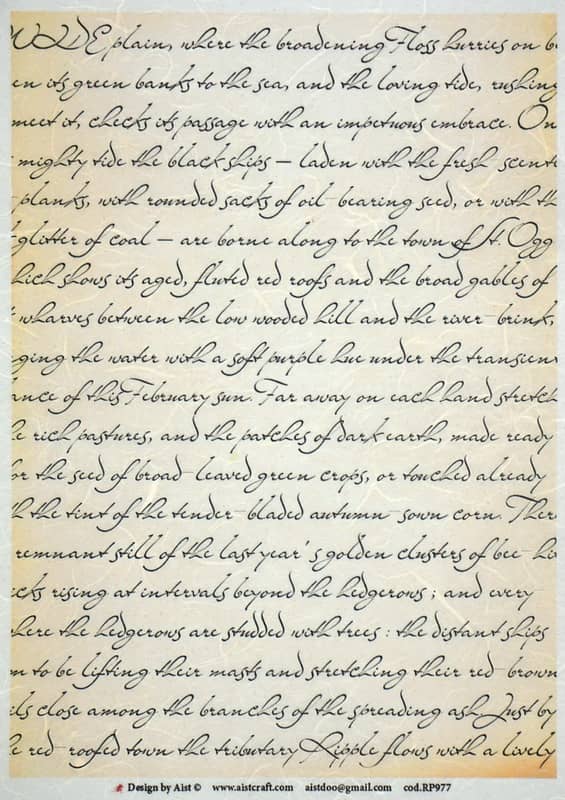 WIDE plain, where the broadening Floss hurries on b
en its green banks to the sea, and the loving tide, rushing
meet it, checks its passage with an impetuous embrace. On
mighty tide the black ships – laden with the fresh-scente
planks, with rounded sacks of oil-bearing seed, or with th
glitter of coal – are borne along to the town of St. Ogg
hich shows its aged, fluted red roofs and the broad gables of
wharves between the low wooded hill and the river-brink,
ging the water with a soft purple hue under the transient
ance of this February sun. Far away on each hand stretch
e rich pastures, and the patches of dark earth, made ready
or the seed of broad-leaved green crops, or touched already
h the tint of the tender-bladed autumn-sown corn. There
remnant still of the last year's golden clusters of bee-hi
cks rising at intervals beyond the hedgerows; and every
here the hedgerows are studded with trees: the distant ships
m to be lifting their masts and stretching their red-brown
ils close among the branches of the spreading ash. Just by
e red-roofed town the tributary Ripple flows with a lively
Design by Aist © www.aistcraft.com aistdoo@gmail.com cod.RP977